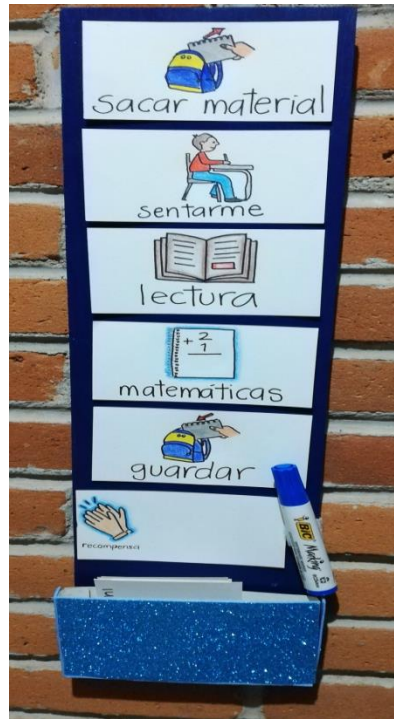 sacar material
sentarme
lectura
+ 2
1
matemáticas
guardar
recompensa
BIC Marking